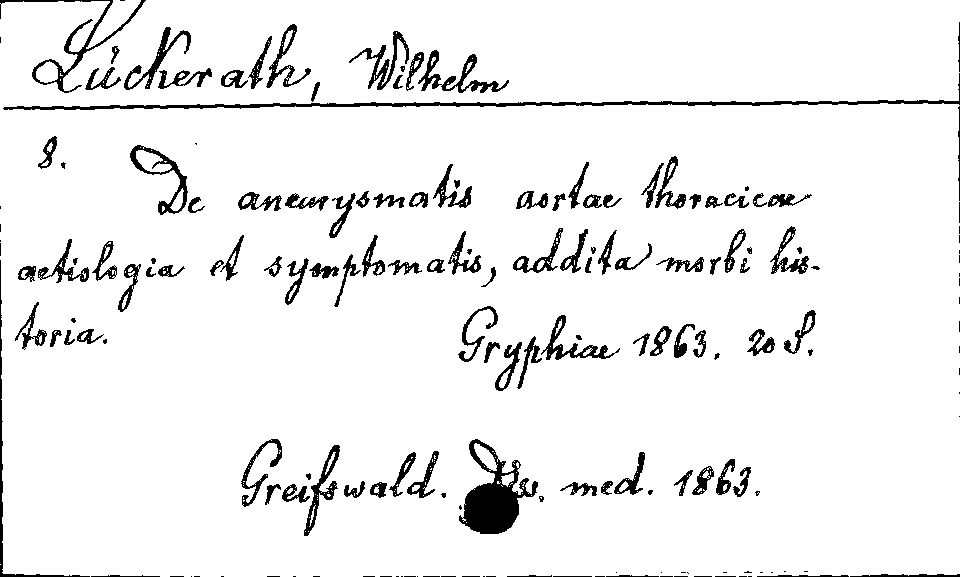 Lückerath, Wilhelm
8.
De aneurysmatis aortae thoracicae
aetiologia et symptomatis, addita morbi his-
toria.
Gryphiae 1863. 20 S.
Greifswald. Diss. med. 1863.